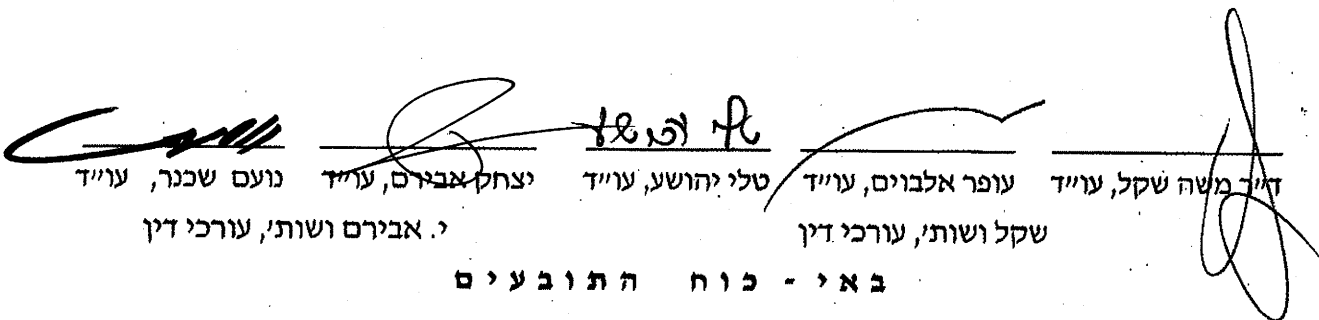 טלי יהושע
ד״ר משה שקל, עו״ד עופר אלבוים, עו״ד טלי יהושע, עו״ד יצחק אבירם, עו״ד נועם שכנר, עו״ד
שקל ושות׳, עורכי דין י. אבירם ושות׳, עורכי דין
באי - כוח התובעים